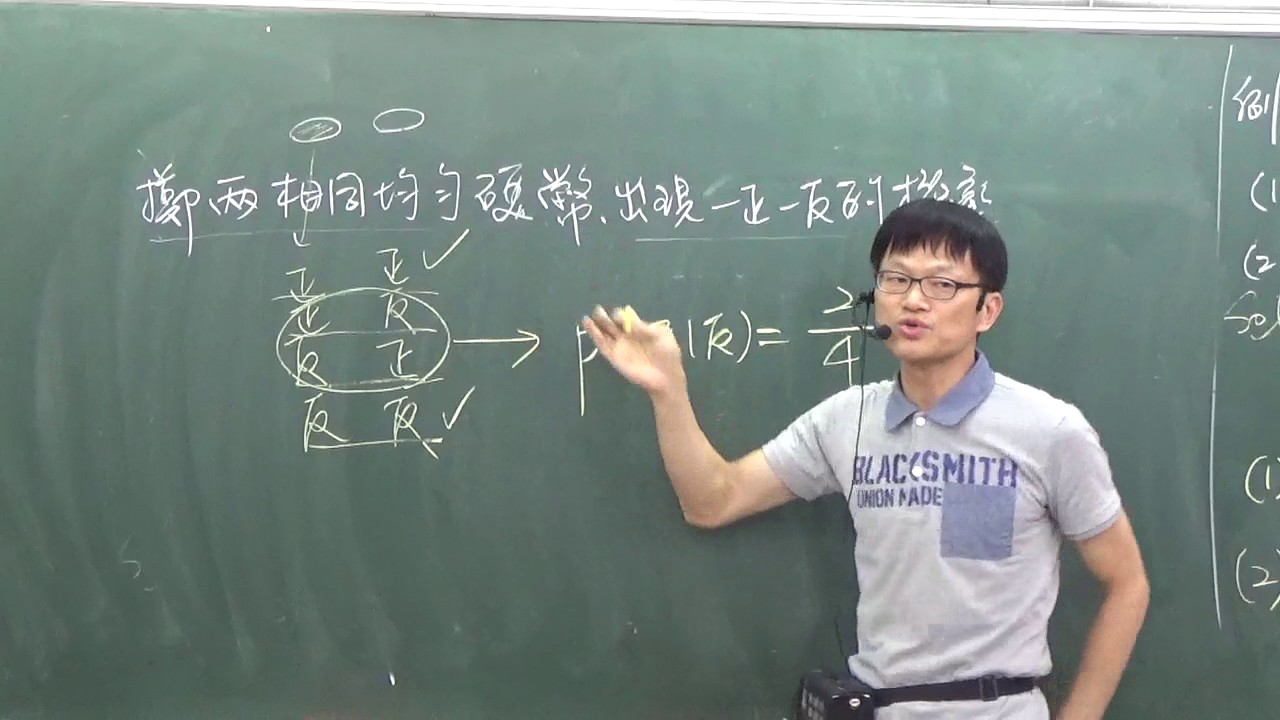 擲兩相同均勻硬幣、出現一正一反的機
正 正 ✓
正 反
反 正
反 反 ✓
P 1反) = 2/4
BLACKSMITH
UNION MADE
例
(1
(2
Sol
(1)
(2)